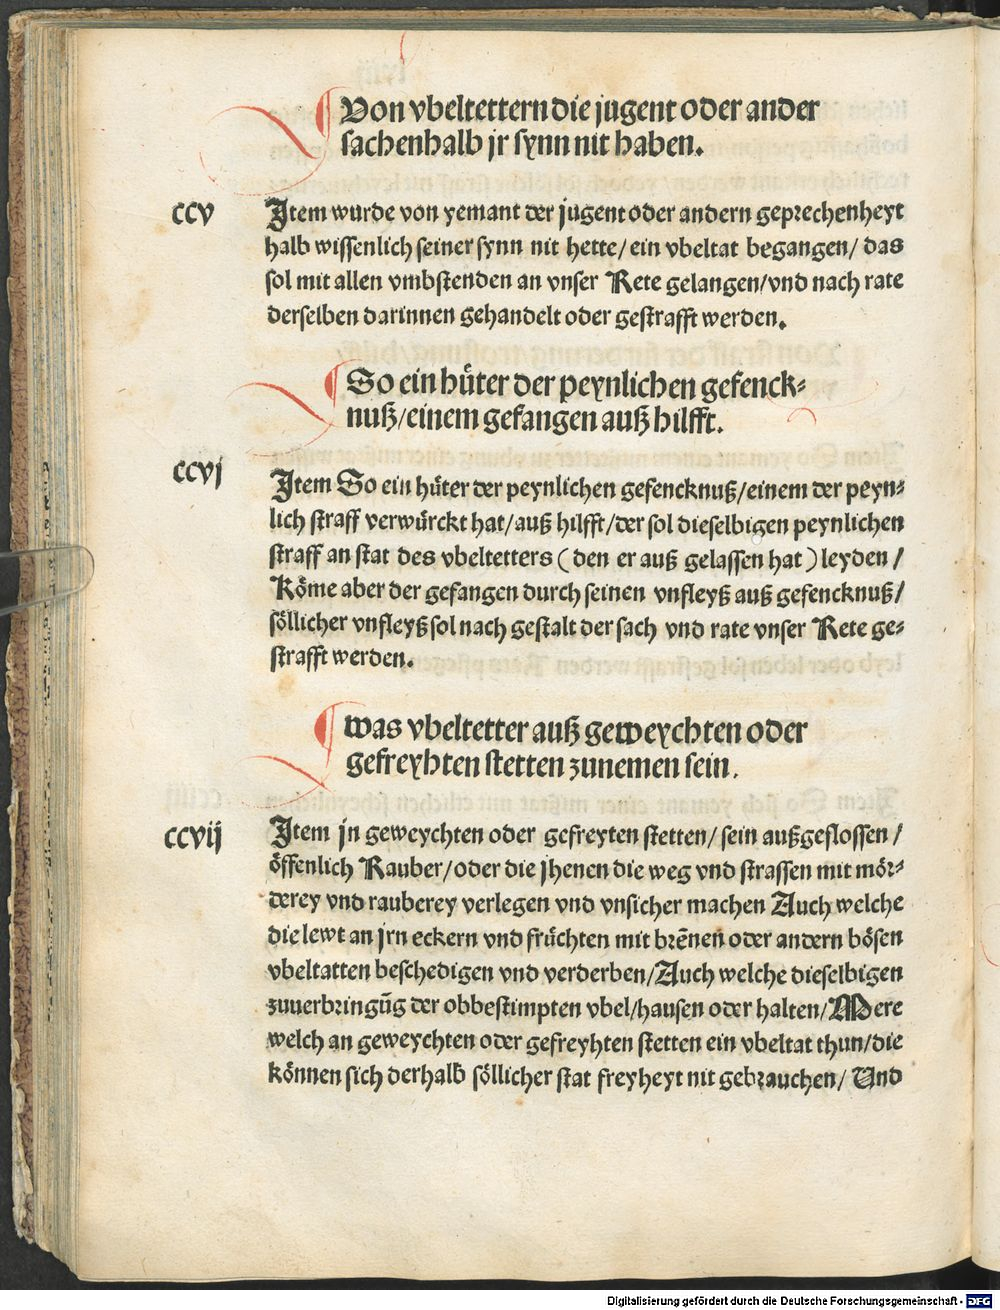 Von vbeltettern die jugent oder ander
sachenhalb jr synn nit haben.
ccv
Item wurde von yemant der jugent oder andern geprechenheyt
halb wissenlich seiner synn nit hette/ ein vbeltat begangen/ das
sol mit allen vmbstenden an vnser Rete gelangen/vnd nach rate
derselben darinnen gehandelt oder gestrafft werden.
So ein hüter der peynlichen gefenck-
nuß/einem gefangen auß hilfft.
ccvj
Item So ein hüter der peynlichen gefencknuß/einem der peyn-
lich straff verwürckt hat/auß hilfft/der sol dieselbigen peynlichen
straff an stat des vbeltetters (den er auß gelassen hat) leyden /
Köme aber der gefangen durch seinen vnfleyß auß gefencknuß/
söllicher vnfleyß sol nach gestalt der sach vnd rate vnser Rete ge-
strafft werden.
was vbeltetter auß geweychten oder
gefreyhten stetten zunemen sein.
ccvij
Item jn geweychten oder gefreyten stetten/ sein außgeslossen /
öffenlich Rauber/oder die jhenen die weg vnd strassen mit mör-
derey vnd rauberey verlegen vnd vnsicher machen Auch welche
die lewt an jrn eckern vnd früchten mit brēnen oder andern bösen
vbeltatten beschedigen vnd verderben/Auch welche dieselbigen
zuuerbringūg der obbestimpten vbel/hausen oder halten/Mere
welch an geweychten oder gefreyhten stetten ein vbeltat thun/die
können sich derhalb söllicher stat freyheyt nit gebrauchen/ Und
Digitalisierung gefördert durch die Deutsche Forschungsgemeinschaft - DFG